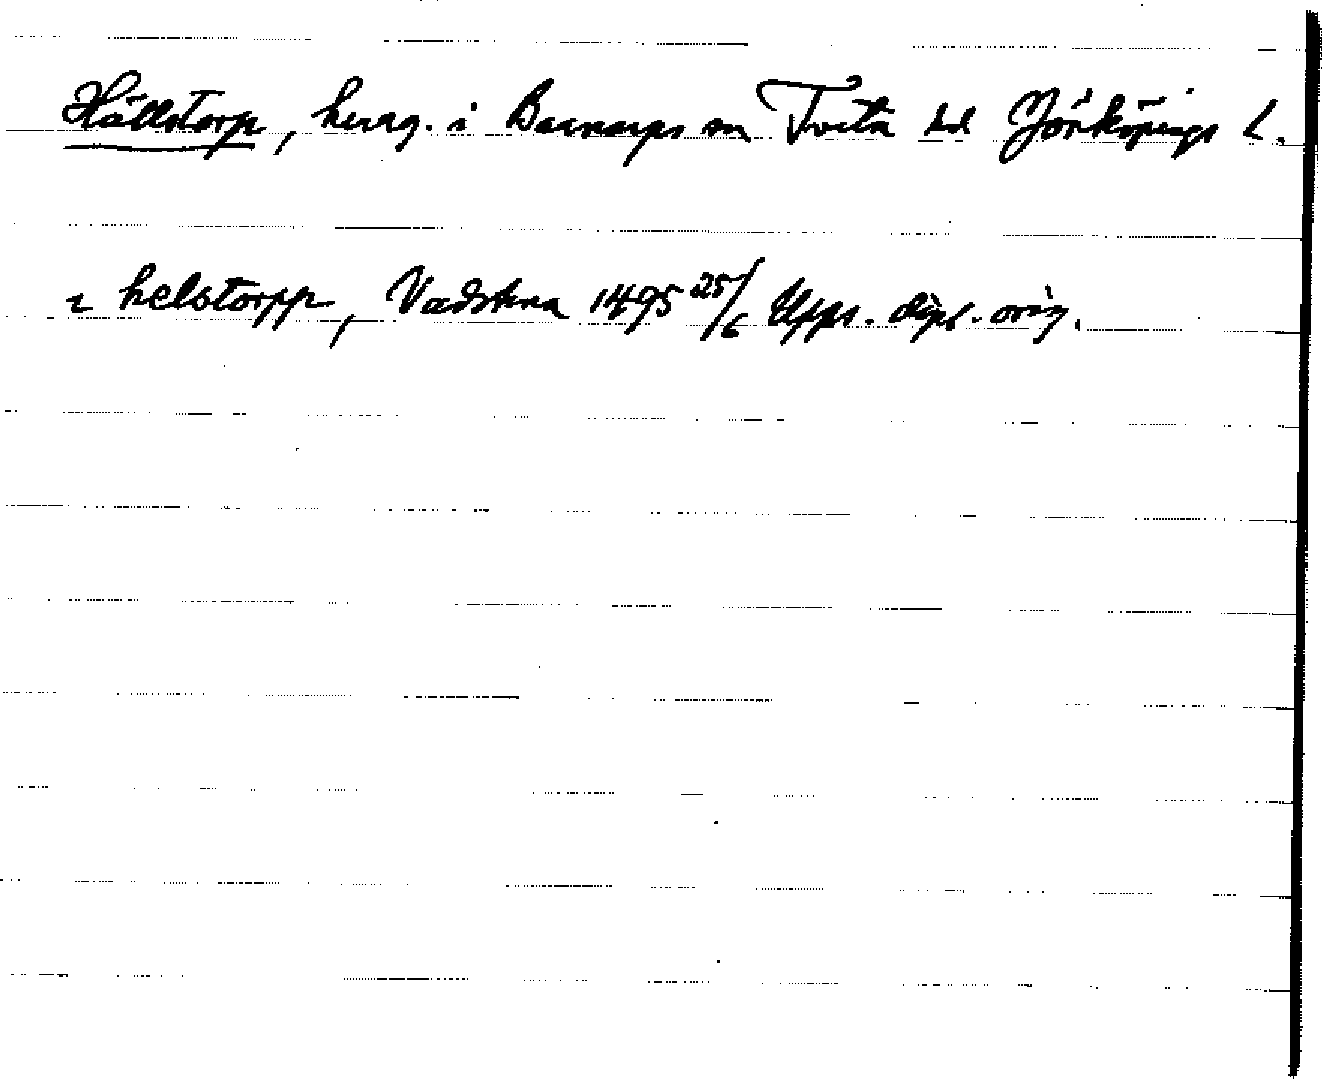 Hällstorp, herrg. i Barnarps sn Tveta hd Jönköpings l.
i helstorpp, Vadstena 1495 25/6 Upps. dipl. orig.